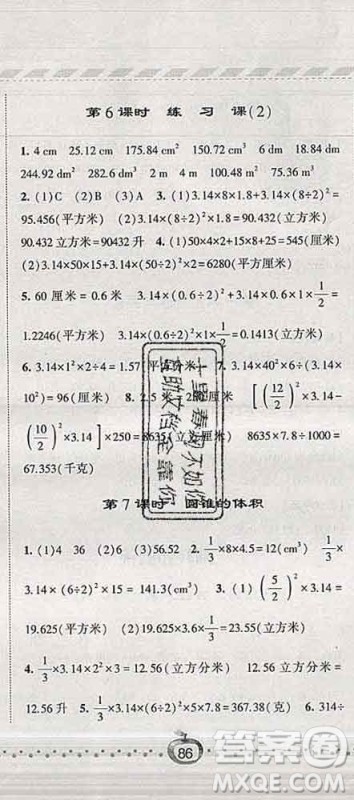 第6课时 练 习 课(2)
1. 4 cm 25.12 cm 175.84 cm² 150.72 cm³ 6 dm 18.84 dm
244.92 dm² 282.6 dm³ 2 m 4 m 100.48 m² 75.36 m³
2. (1)C (2)B (3)A 3. (1)3.14×8×1.8+3.14×(8÷2)²=
95.456(平方米) (2)3.14×(8÷2)²×1.8=90.432(立方米)
90.432立方米=90432升 4. (1)50×4×2+15×4+25=545(厘米)
(2)3.14×50×15+3.14×(50÷2)²×2=6280(平方厘米)
5. 60厘米=0.6米 3.14×(0.6÷2)²+3.14×0.6×1×1/2=
1.2246(平方米) 3.14×(0.6÷2)²×1×1/2=0.1413(立方米)
6. 3.14×1²×2÷4=1.57(平方厘米) 7. 3.14×40²×6÷(3.14×
10²)=96(厘米) 8. 2.5米=250厘米 [(12/2)²×3.14-
(10/2)²×3.14]×250=8635(立方厘米) 8635×7.8÷1000=
67.353(千克)
第7课时 圆锥的体积
1. (1)4 36 (2)6 (3)56.52 2. 1/3×8×4.5=12(cm³) 1/3
×3.14×(6÷2)²×15=141.3(cm³) 3. (1)(5/2)²×3.14=
19.625(平方米) (2)1/3×19.625×3.6=23.55(立方米)
4. 1/3×3.14×2²×3=12.56(立方分米) 12.56立方分米=
12.56升 5. 1/3×3.14×3²×5×7.8=367.38(克) 6. 314÷
86
十里春风不如你
互助文档全靠你
答案圈
MXQE.COM